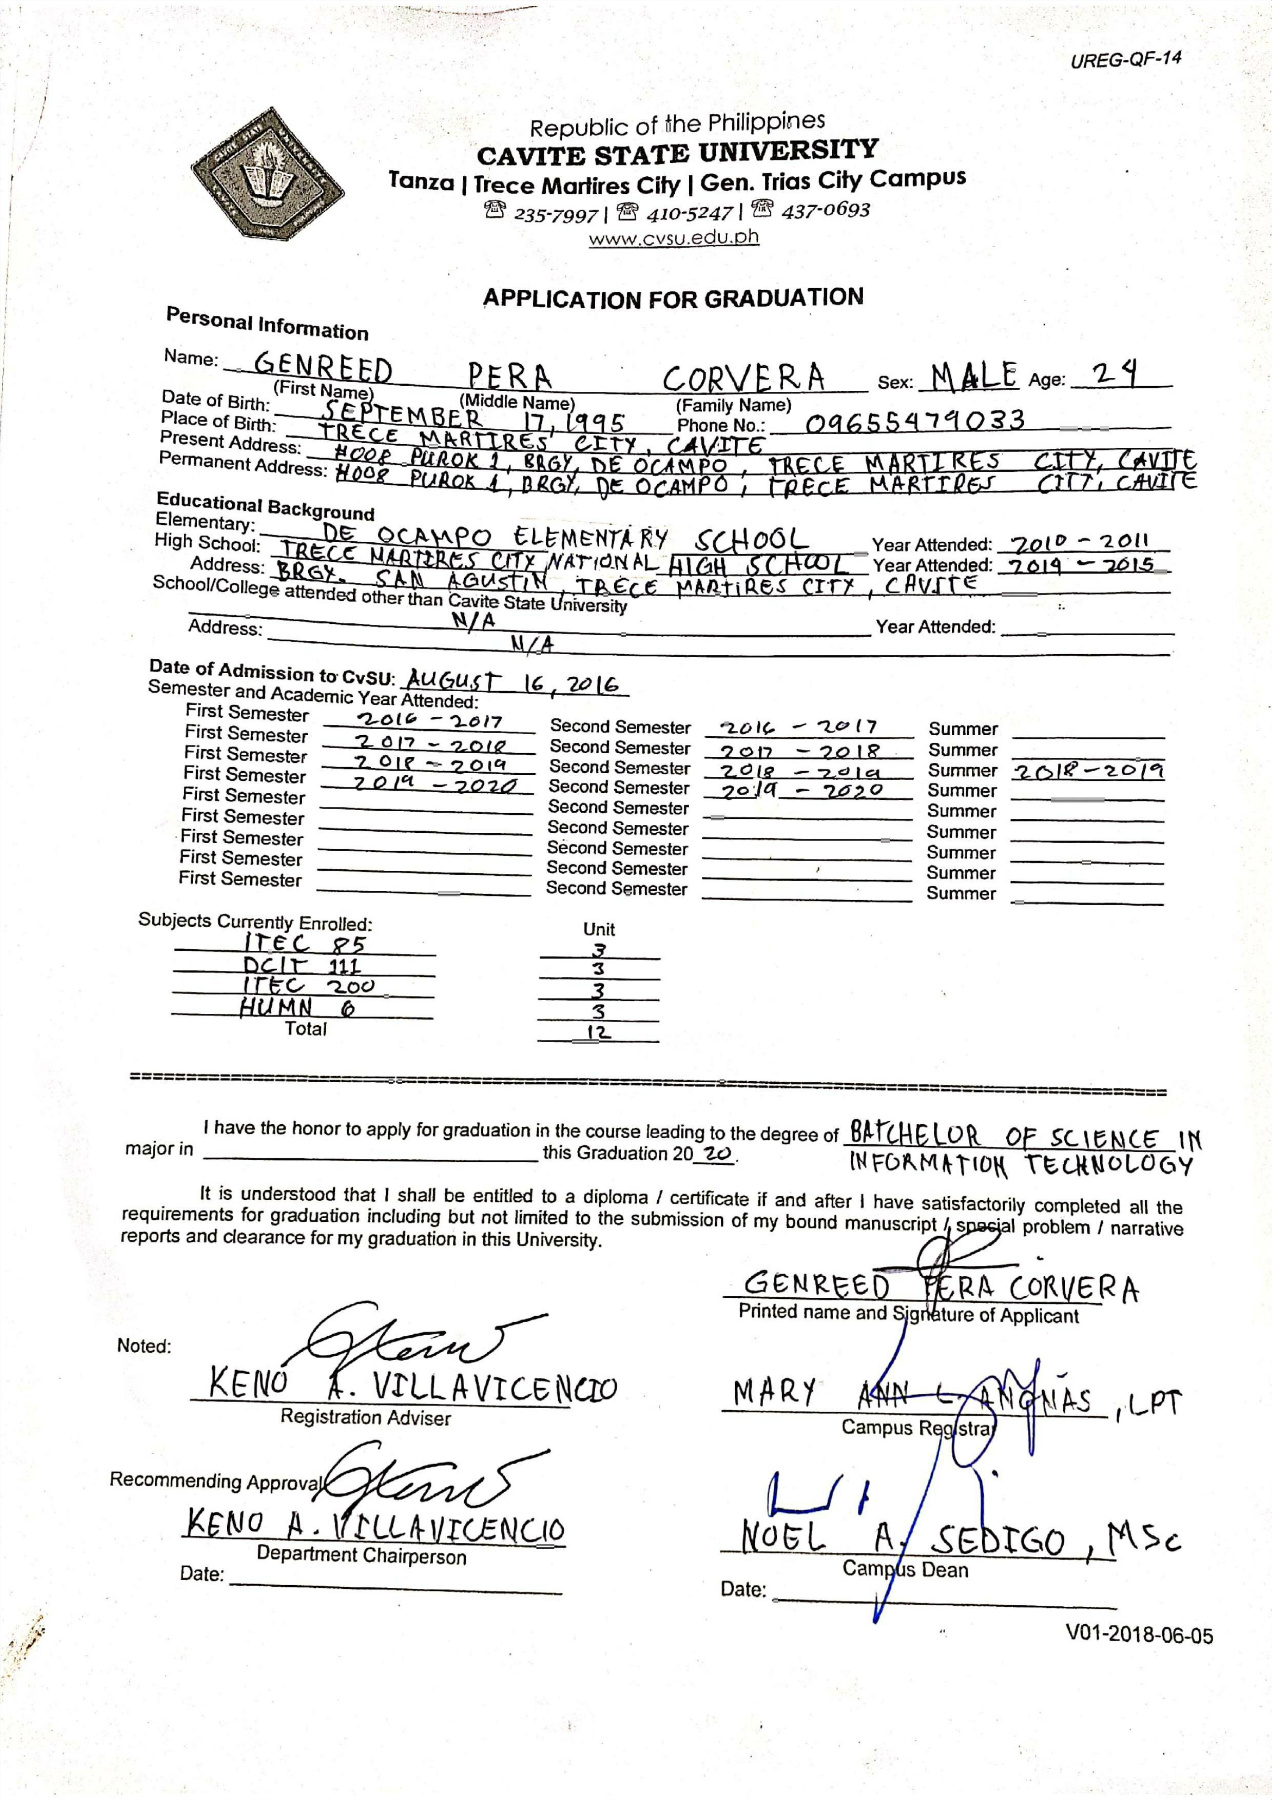 UREG-QF-14
Republic of the Philippines
CAVITE STATE UNIVERSITY
Tanza | Trece Martires City | Gen. Trias City Campus
☏ 235-7997 | ☏ 410-5247 | ☏ 437-0693
www.cvsu.edu.ph
APPLICATION FOR GRADUATION
Personal Information
Name: GENREED PERA CORVERA Sex: MALE Age: 24
(First Name) (Middle Name) (Family Name)
Date of Birth: SEPTEMBER 17, 1995 Phone No.: 09655479033
Place of Birth: TRECE MARTIRES CITY, CAVITE
Present Address: #008 PUROK 1, BRGY, DE OCAMPO, TRECE MARTIRES CITY, CAVITE
Permanent Address: #008 PUROK 1, BRGY, DE OCAMPO, TRECE MARTIRES CITY, CAVITE
Educational Background
Elementary: DE OCAMPO ELEMENTARY SCHOOL Year Attended: 2010 - 2011
High School: TRECE MARTIRES CITY NATIONAL HIGH SCHOOL Year Attended: 2014 - 2015
Address: BRGY. SAN AGUSTIN, TRECE MARTIRES CITY, CAVITE
School/College attended other than Cavite State University
N/A Year Attended:
Address: N/A
Date of Admission to CvSU: AUGUST 16, 2016
Semester and Academic Year Attended:
First Semester 2016 - 2017 Second Semester 2016 - 2017 Summer
First Semester 2017 - 2018 Second Semester 2017 - 2018 Summer
First Semester 2018 - 2019 Second Semester 2018 - 2019 Summer 2018 - 2019
First Semester 2019 - 2020 Second Semester 2019 - 2020 Summer
First Semester Second Semester Summer
First Semester Second Semester Summer
First Semester Second Semester Summer
First Semester Second Semester Summer
First Semester Second Semester Summer
Subjects Currently Enrolled: Unit
ITEC 85 3
DCIT 111 3
ITEC 200 3
HUMN 6 3
Total 12
I have the honor to apply for graduation in the course leading to the degree of BATCHELOR OF SCIENCE IN
major in this Graduation 20 20. INFORMATION TECHNOLOGY
It is understood that I shall be entitled to a diploma / certificate if and after I have satisfactorily completed all the
requirements for graduation including but not limited to the submission of my bound manuscript / special problem / narrative
reports and clearance for my graduation in this University.
GENREED PERA CORVERA
Printed name and Signature of Applicant
Noted:
KENO A. VILLAVICENCIO
Registration Adviser
MARY ANN L. ANGNAS, LPT
Campus Registrar
Recommending Approval
KENO A. VILLAVICENCIO
Department Chairperson
Date:
NOEL A. SEDIGO, MSc
Campus Dean
Date:
V01-2018-06-05